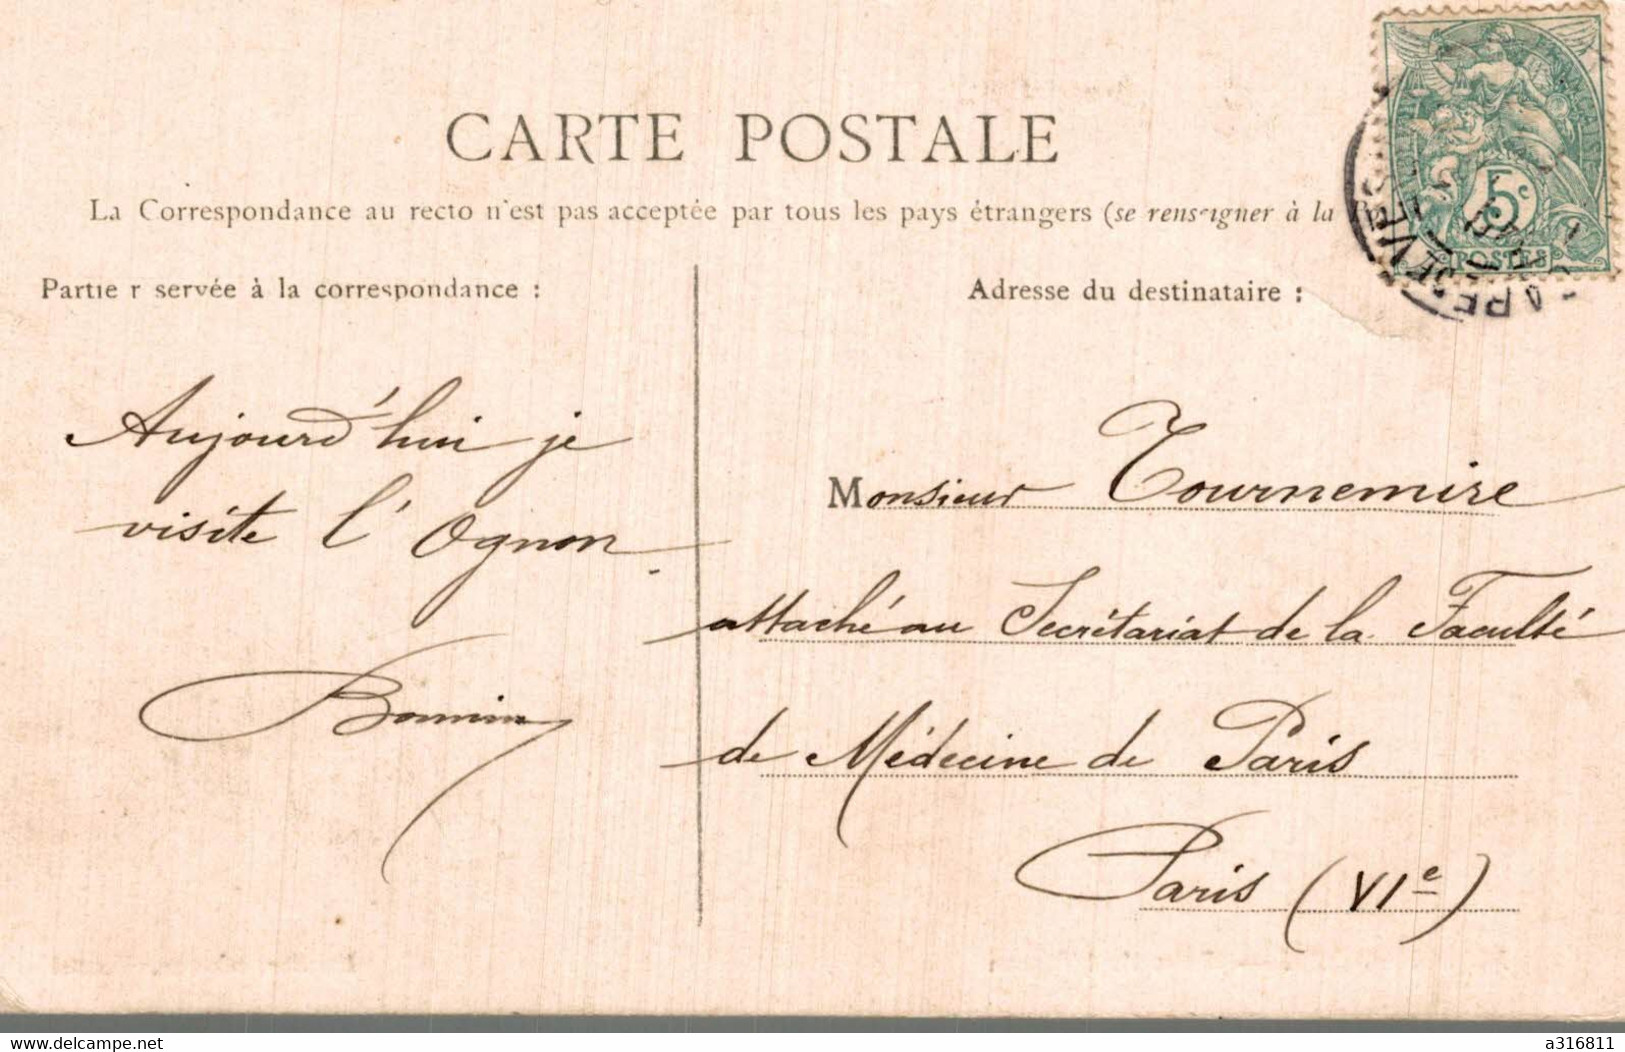 CARTE POSTALE
La Correspondance au recto n'est pas acceptée par tous les pays étrangers (se renseigner à la
Partie r servée à la correspondance :
Adresse du destinataire :
Aujourd'hui je
visite l'Ognon.
Bonnin
Monsieur Tournemire
attaché au Secrétariat de la Faculté
de Médecine de Paris
Paris (VIe)
5c
POSTES
www.delcampe.net
a316811